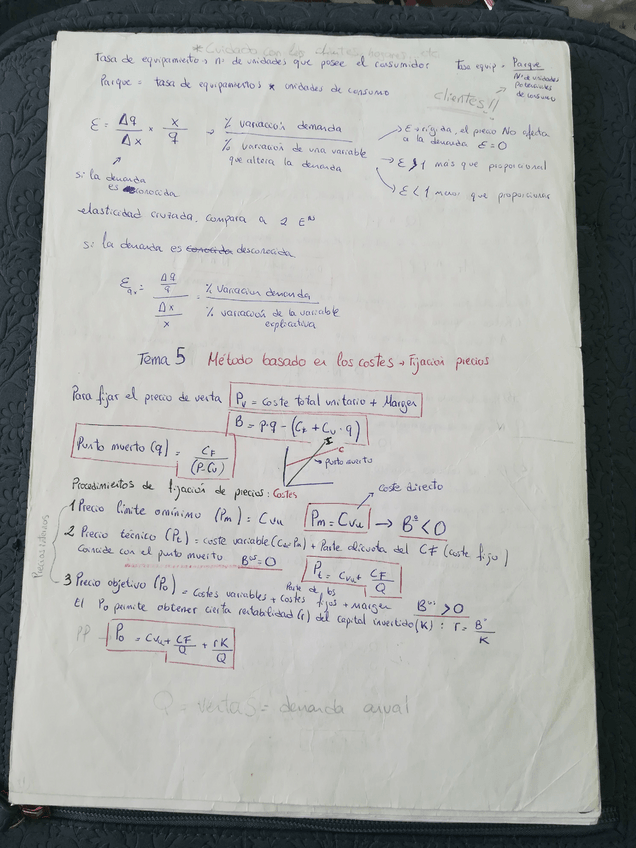 * Cuidado con los clientes
Tasa de equipamiento: nº de unidades que posee el consumidor
Tasa equip = Parque
Nº de unidades potenciales de consumo
Parque = tasa de equipamientos x unidades de consumo
clientes!!
ε = Δq/Δx * x/q → % variación demanda / % variación de una variable que altera la demanda
→ ε rígida, el precio NO afecta a la demanda ε=0
→ ε > 1 más que proporcional
→ ε < 1 menor que proporcional
si la demanda es conocida
elasticidad cruzada, compara a 2 Eᵃˢ
si la demanda es conocida desconocida.
ε = Δq/q / Δx/x = % variacion demanda / % variación de la variable explicativa
Tema 5 Método basado en los costes → Fijación precios
Para fijar el precio de venta Pv = coste total unitario + Margen
B = p·q - (CF + Cu·q)
Punto muerto (q) = CF/(P-Cu)
I
C
→ punto muerto
Procedimientos de fijación de precios: Costes
coste directo
1 Precio límite o mínimo (Pm) = Cvu Pm = Cvu → Bº < 0
2 Precio técnico (Pt) = coste variable (Cvu, Pm) + Parte alícuota del CF (coste fijo)
Coincide con el punto muerto Bºˢ=0 Pt = Cvu + CF/Q
Precios internos
3 Precio objetivo (Po) = Costes variables + Parte de los costes fijos + margen Bºˢ > 0
El Po permite obtener cierta rentabilidad (r) del capital invertido (K) : r = Bº/K
PP
Po = Cvu + CF/Q + rK/Q
Q = ventas = demanda anual